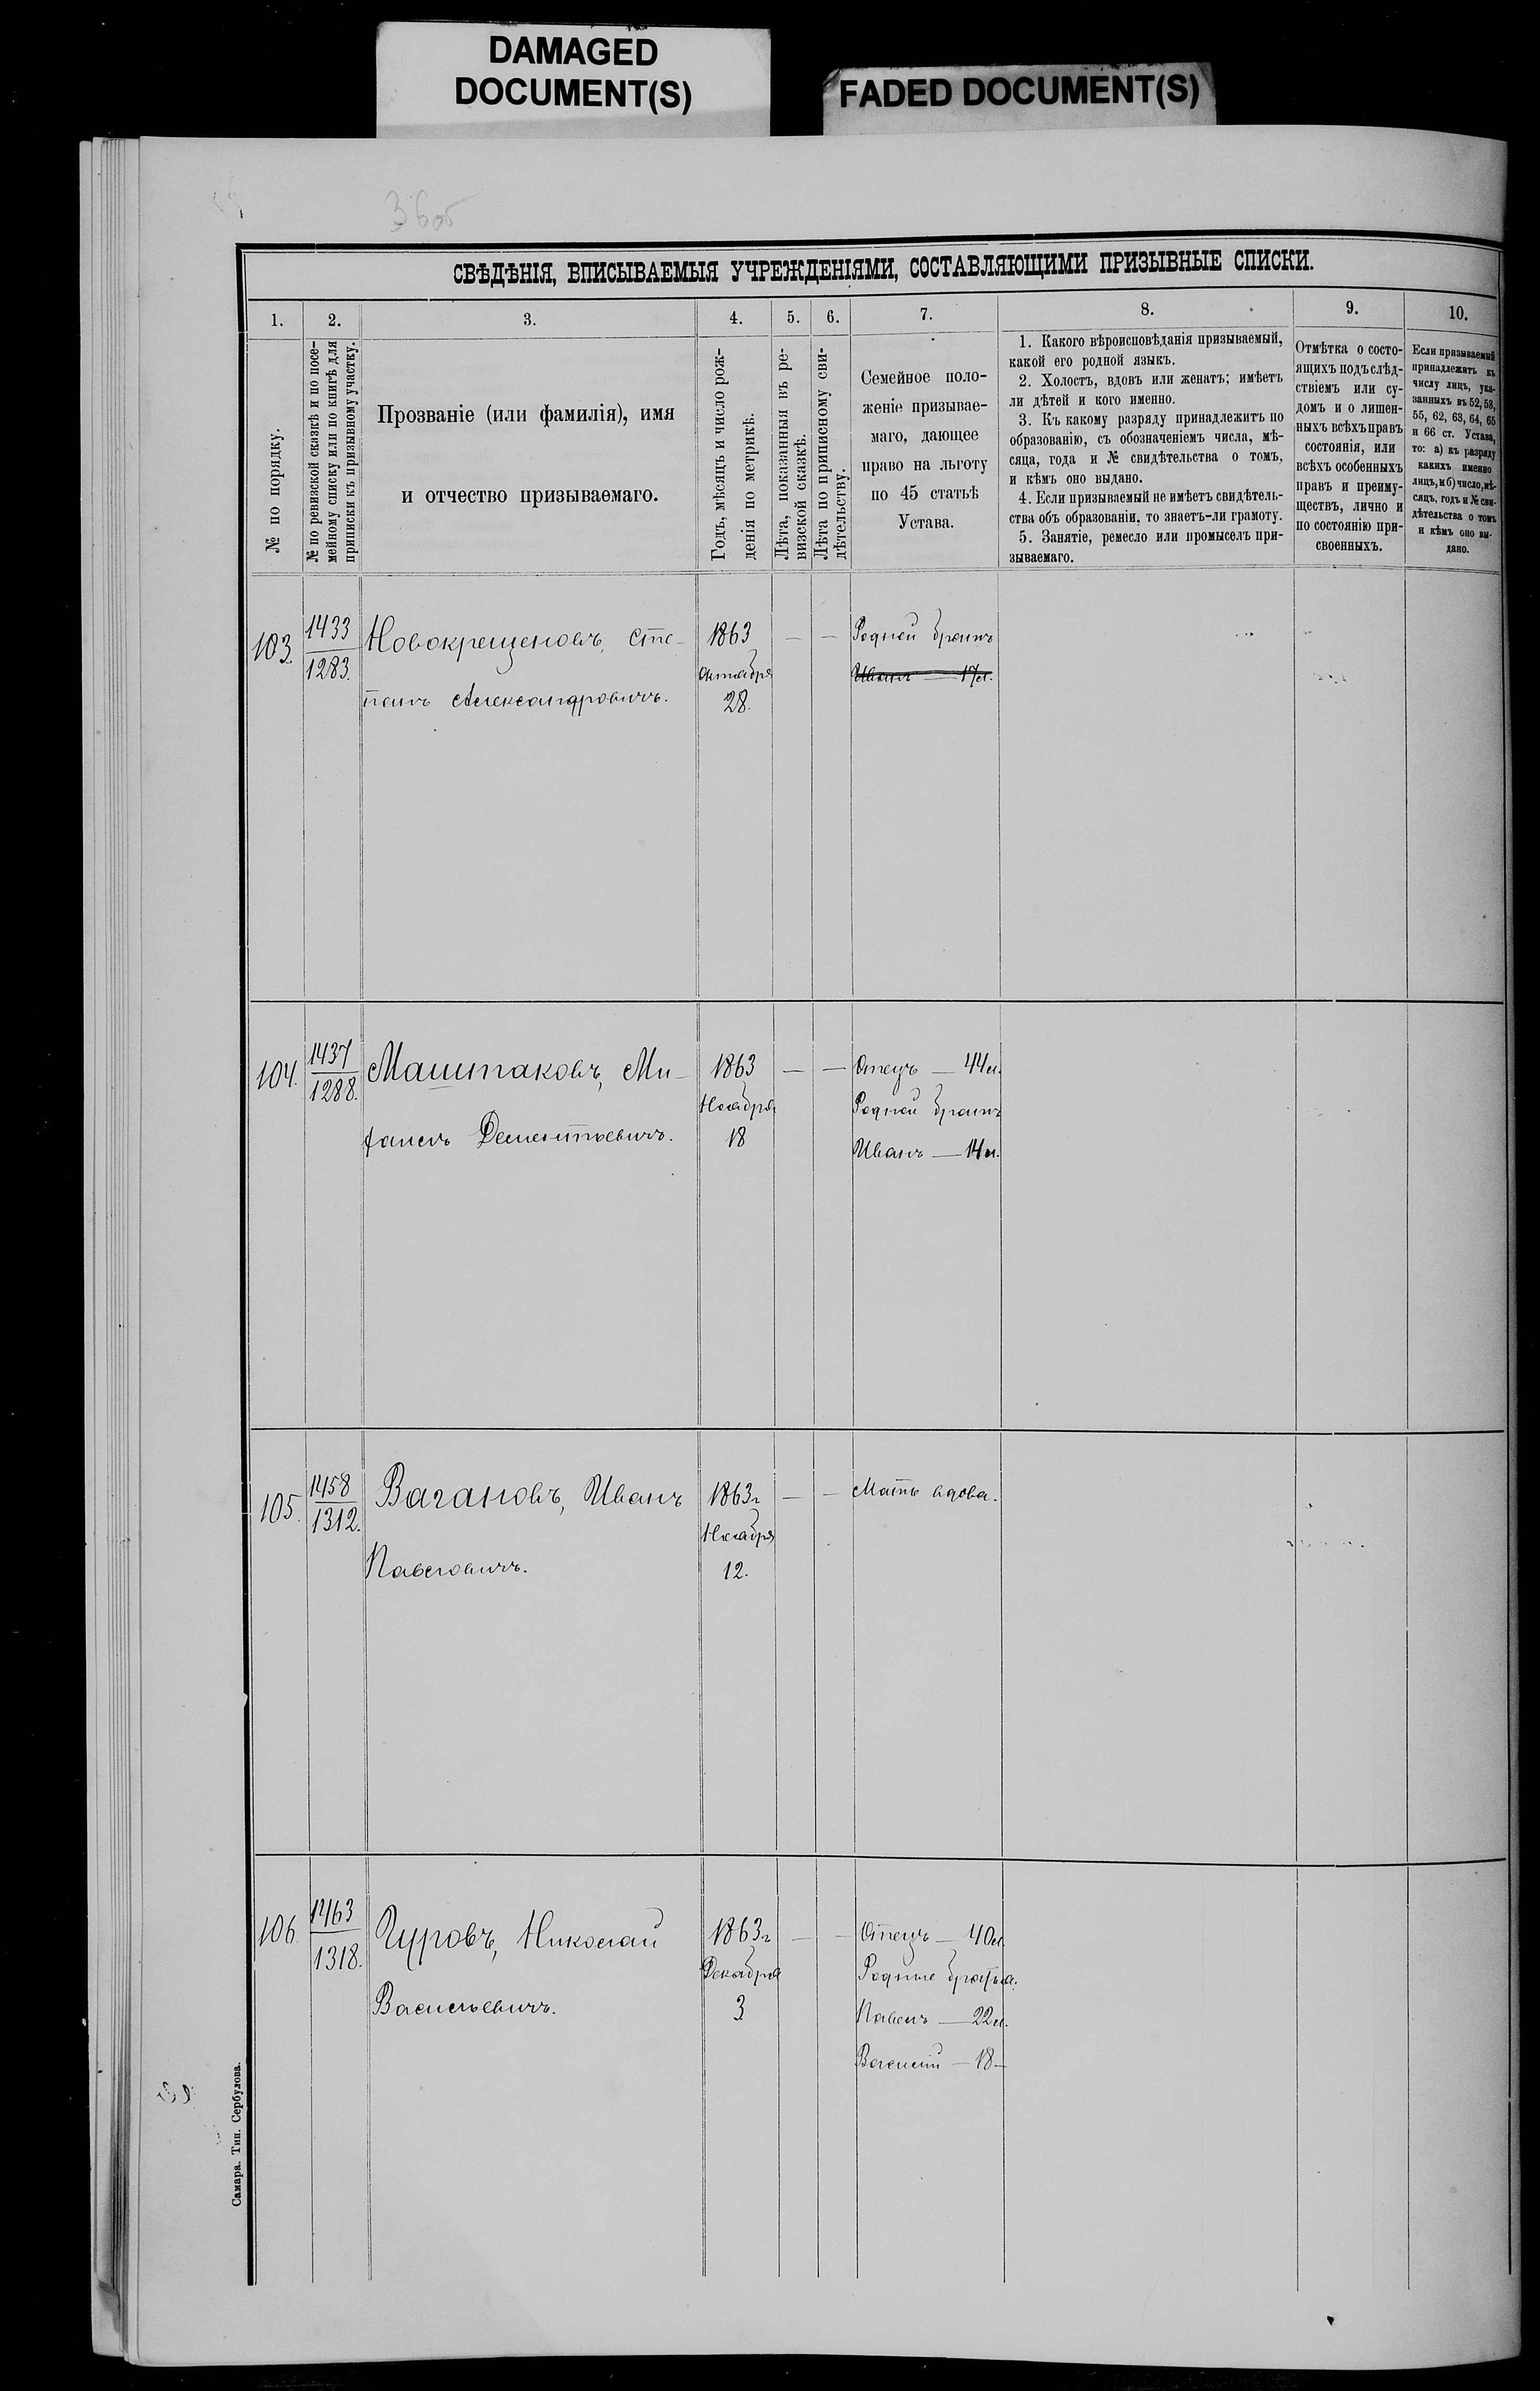 DAMAGED
DOCUMENT(S)
FADED DOCUMENT(S)
36об
СВѢДѢНІЯ, ВПИСЫВАЕМЫЯ УЧРЕЖДЕНІЯМИ, СОСТАВЛЯЮЩИМИ ПРИЗЫВНЫЕ СПИСКИ.
1.
2.
3.
4.
5.
6.
7.
8.
9.
10.
№ по порядку.
№ по ревизской сказкѣ и по посе-
мейному списку или по книгѣ для
приписки къ призывному участку.
Прозваніе (или фамилія), имя
и отчество призываемаго.
Годъ, мѣсяцъ и число рож-
денія по метрикѣ.
Лѣта, показанныя въ ре-
визской сказкѣ.
Лѣта по приписному сви-
дѣтельству.
Семейное поло-
женіе призывае-
маго, дающее
право на льготу
по 45 статьѣ
Устава.
1. Какого вѣроисповѣданія призываемый,
какой его родной языкъ.
2. Холостъ, вдовъ или женатъ; имѣетъ
ли дѣтей и кого именно.
3. Къ какому разряду принадлежитъ по
образованію, съ обозначеніемъ числа, мѣ-
сяца, года и № свидѣтельства о томъ,
и кѣмъ оно выдано.
4. Если призываемый не имѣетъ свидѣтель-
ства объ образованіи, то знаетъ-ли грамоту.
5. Занятіе, ремесло или промыселъ при-
зываемаго.
Отмѣтка о состо-
ящихъ подъ слѣд-
ствіемъ или су-
домъ и о лишен-
ныхъ всѣхъ правъ
состоянія, или
всѣхъ особенныхъ
правъ и преиму-
ществъ, лично и
по состоянію при-
своенныхъ.
Если призываемый
принадлежитъ къ
числу лицъ, ука-
занныхъ въ 52, 53,
55, 62, 63, 64, 65
и 66 ст. Устава,
то: а) къ разряду
какихъ именно
лицъ, и б) число, мѣ-
сяцъ, годъ и № сви-
дѣтельства о томъ
и кѣмъ оно вы-
дано.
103.
1433
1283.
Новокрещеновъ, Сте-
панъ Александровичъ.
1863
Октября
28.
—
—
Родной братъ
Иванъ — 17л.
104.
1437
1288.
Маштаковъ, Ми-
хаилъ Дементьевичъ.
1863
Ноября
18
—
—
Отецъ — 44л.
Родной братъ
Иванъ — 14л.
105.
1458
1312.
Вагановъ, Иванъ
Павловичъ.
1863г
Ноября
12.
—
—
Мать вдова.
106.
1463
1318.
Гуровъ, Николай
Васильевичъ.
1863г
Декабря
3
—
—
Отецъ — 40л
Родные братья.
Павелъ — 22л.
Василій — 18 —
Самара. Тип. Сербулова.